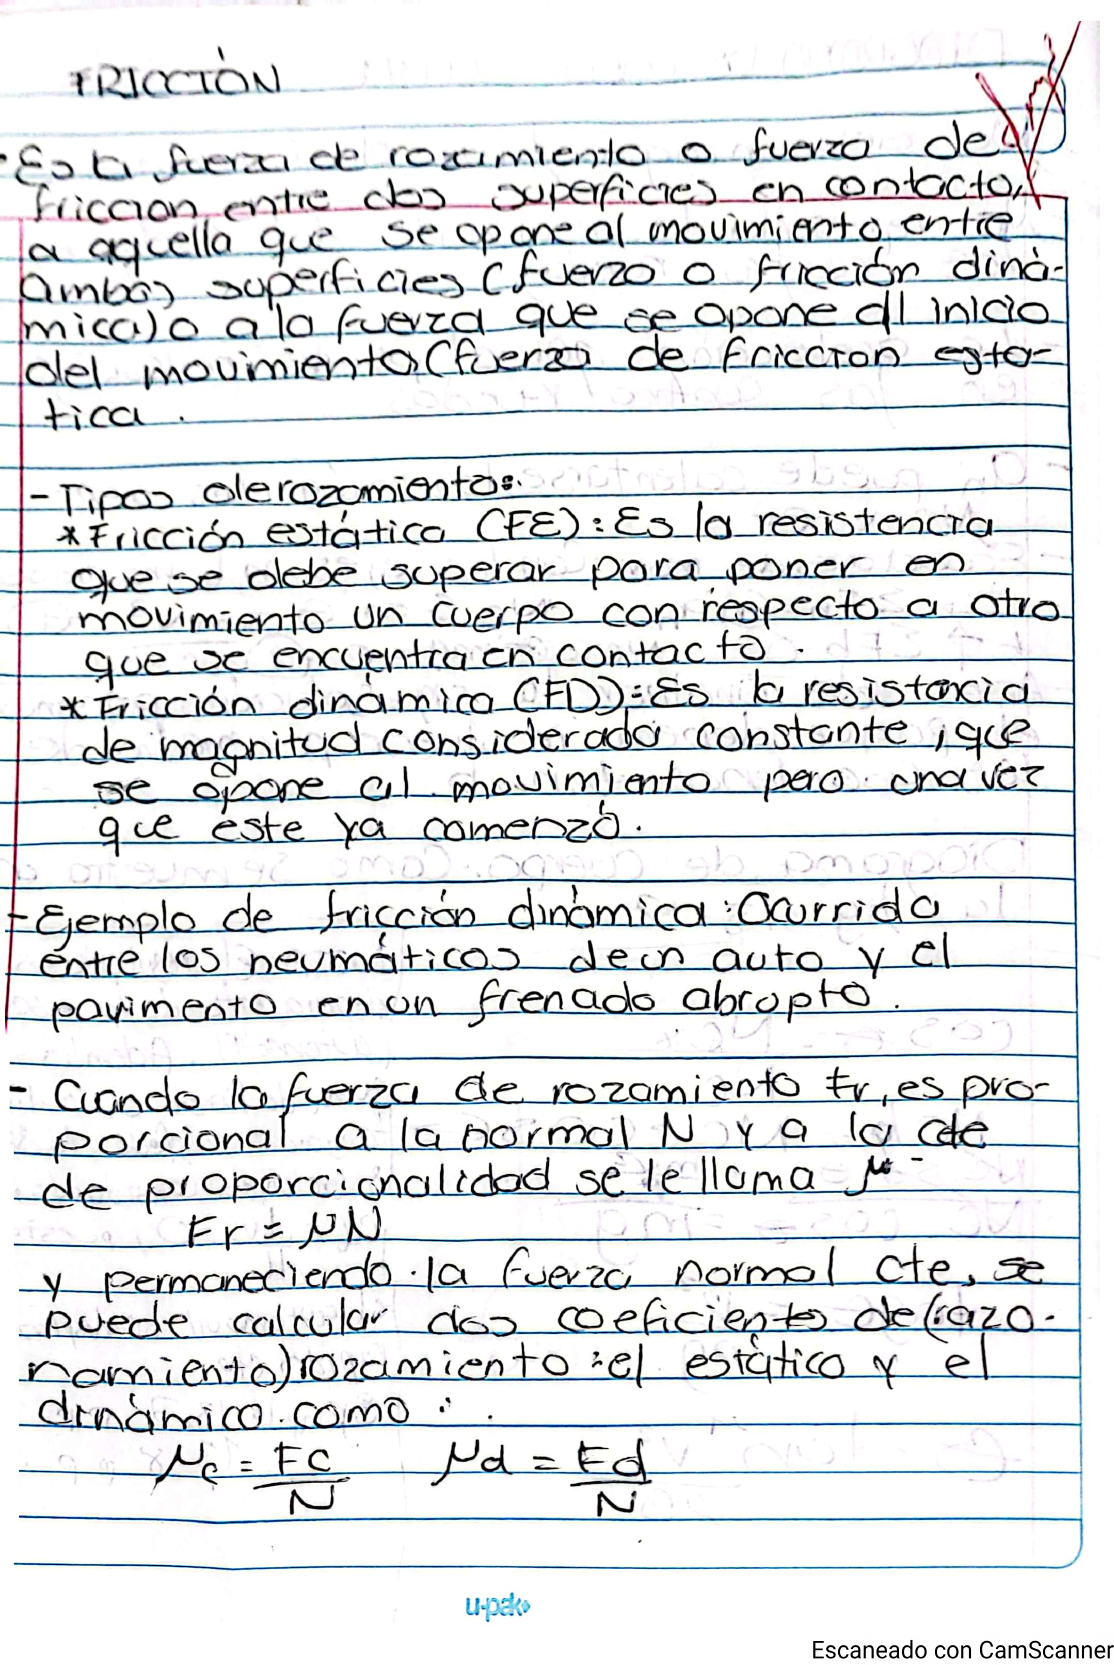 FRICCIÓN
Es la fuerza de rozamiento o fuerza de
friccion entre dos superficies en contacto,
a aquella que se opone al movimiento entre
ambas superficies (fuerzo o fricción diná-
mica) o a la fuerza que se opone al inicio
del movimiento (fuerza de friccion esta-
tica.
- Tipos de rozamiento:
* Fricción estática (FE): Es la resistencia
que se debe superar para poner en
movimiento un cuerpo con respecto a otro
que se encuentra en contacto.
* Fricción dinámica (FD): Es la resistencia
de magnitud considerada constante, que
se opone al movimiento pero una vez
que éste ya comenzó.
- Ejemplo de fricción dinámica: Ocurrida
entre los neumáticos de un auto y el
pavimento en un frenado abrupto.
- Cuando la fuerza de rozamiento Fr, es pro-
porcional a la normal N y a la cte
de proporcionalidad se le llama μ
Fr = μN
y permaneciendo la fuerza normal cte, se
puede calcular dos coeficientes de (razo-
namiento) rozamiento: el estático y el
dinámico como:
μe = Fe/N μd = Fd/N
u-pak
Escaneado con CamScanner